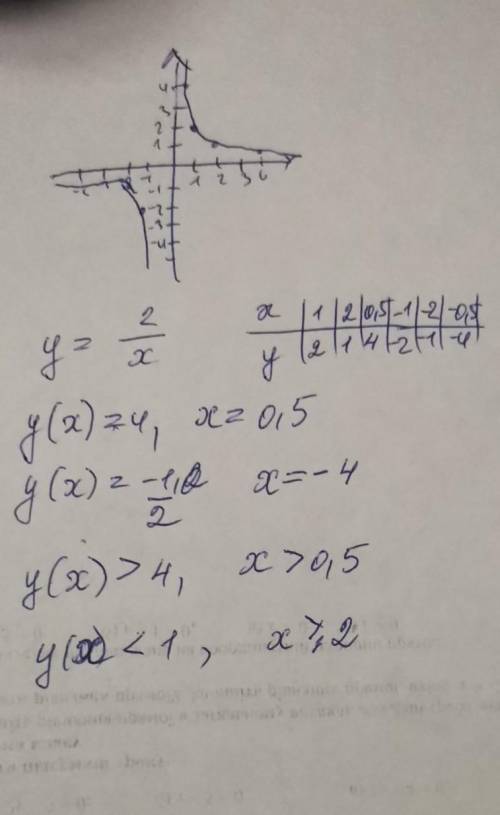 4
3
2
1
-1 1 2 3 4
-1
-2
-3
-4
y = 2/x
x | 1 | 2 | 0,5 | -1 | -2 | -0,5
y | 2 | 1 | 4 | -2 | -1 | -4
y(x) = 4, x = 0,5
y(x) = -1/2 x = -4
y(x) > 4, x > 0,5
y(x) < 1, x ⩾ 2